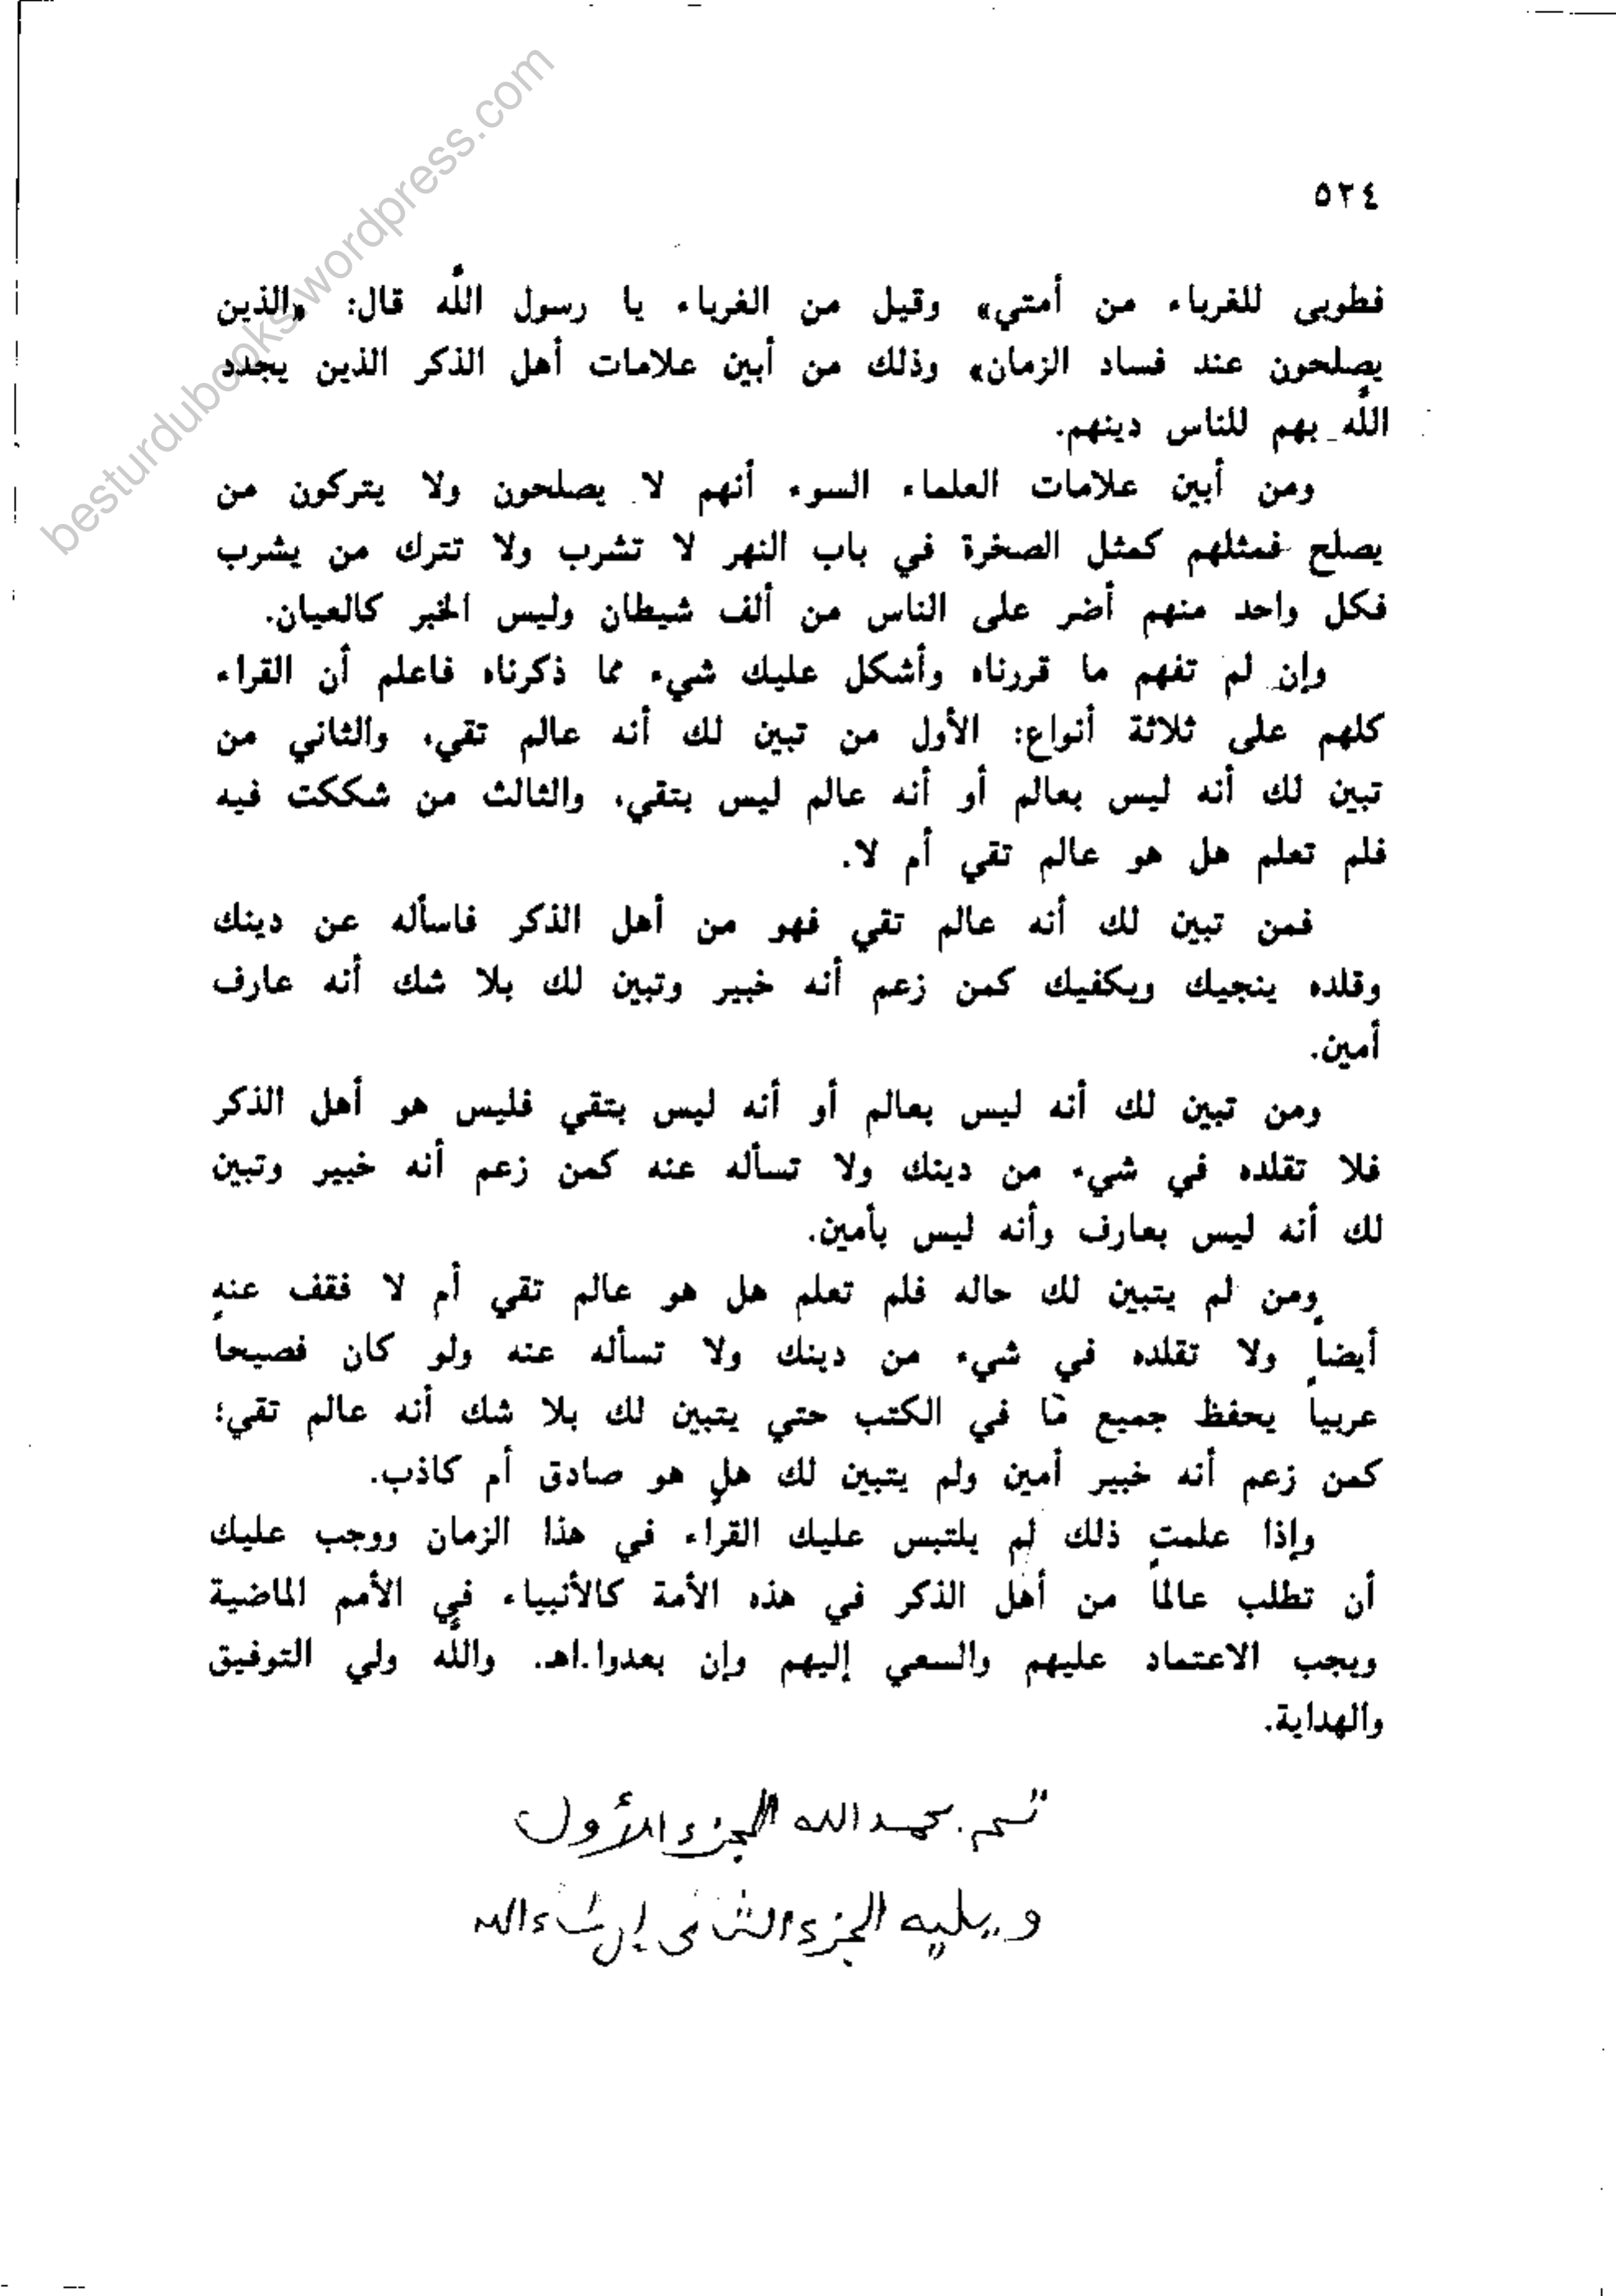 ٥٢٤
فطوبى للغرباء من أمتي» وقيل من الغرباء يا رسول الله قال: «الذين
يصلحون عند فساد الزمان» وذلك من أبين علامات أهل الذكر الذين يجدد
الله بهم للناس دينهم.
ومن أبين علامات العلماء السوء أنهم لا يصلحون ولا يتركون من
يصلح فمثلهم كمثل الصخرة في باب النهر لا تشرب ولا تترك من يشرب
فكل واحد منهم أضر على الناس من ألف شيطان وليس الخبر كالعيان.
وإن لم تفهم ما قررناه وأشكل عليك شيء مما ذكرناه فاعلم أن القراء
كلهم على ثلاثة أنواع: الأول من تبين لك أنه عالم تقي، والثاني من
تبين لك أنه ليس بعالم أو أنه عالم ليس بتقي، والثالث من شككت فيه
فلم تعلم هل هو عالم تقي أم لا.
فمن تبين لك أنه عالم تقي فهو من أهل الذكر فاسأله عن دينك
وقلده ينجيك ويكفيك كمن زعم أنه خبير وتبين لك بلا شك أنه عارف
أمين.
ومن تبين لك أنه ليس بعالم أو أنه ليس بتقي فليس هو أهل الذكر
فلا تقلده في شيء من دينك ولا تسأله عنه كمن زعم أنه خبير وتبين
لك أنه ليس بعارف وأنه ليس بأمين.
ومن لم يتبين لك حاله فلم تعلم هل هو عالم تقي أم لا فقف عنه
أيضاً ولا تقلده في شيء من دينك ولا تسأله عنه ولو كان فصيحاً
عربياً يحفظ جميع ما في الكتب حتي يتبين لك بلا شك أنه عالم تقي؛
كمن زعم أنه خبير أمين ولم يتبين لك هل هو صادق أم كاذب.
وإذا علمت ذلك لم يلتبس عليك القراء في هذا الزمان ووجب عليك
أن تطلب عالماً من أهل الذكر في هذه الأمة كالأنبياء في الأمم الماضية
ويجب الاعتماد عليهم والسعي إليهم وإن بعدوا.اهـ. والله ولي التوفيق
والهداية.
تم بحمد الله الجزء الأول
ويليه الجزء الثاني إن شاء الله
besturdubooks.wordpress.com